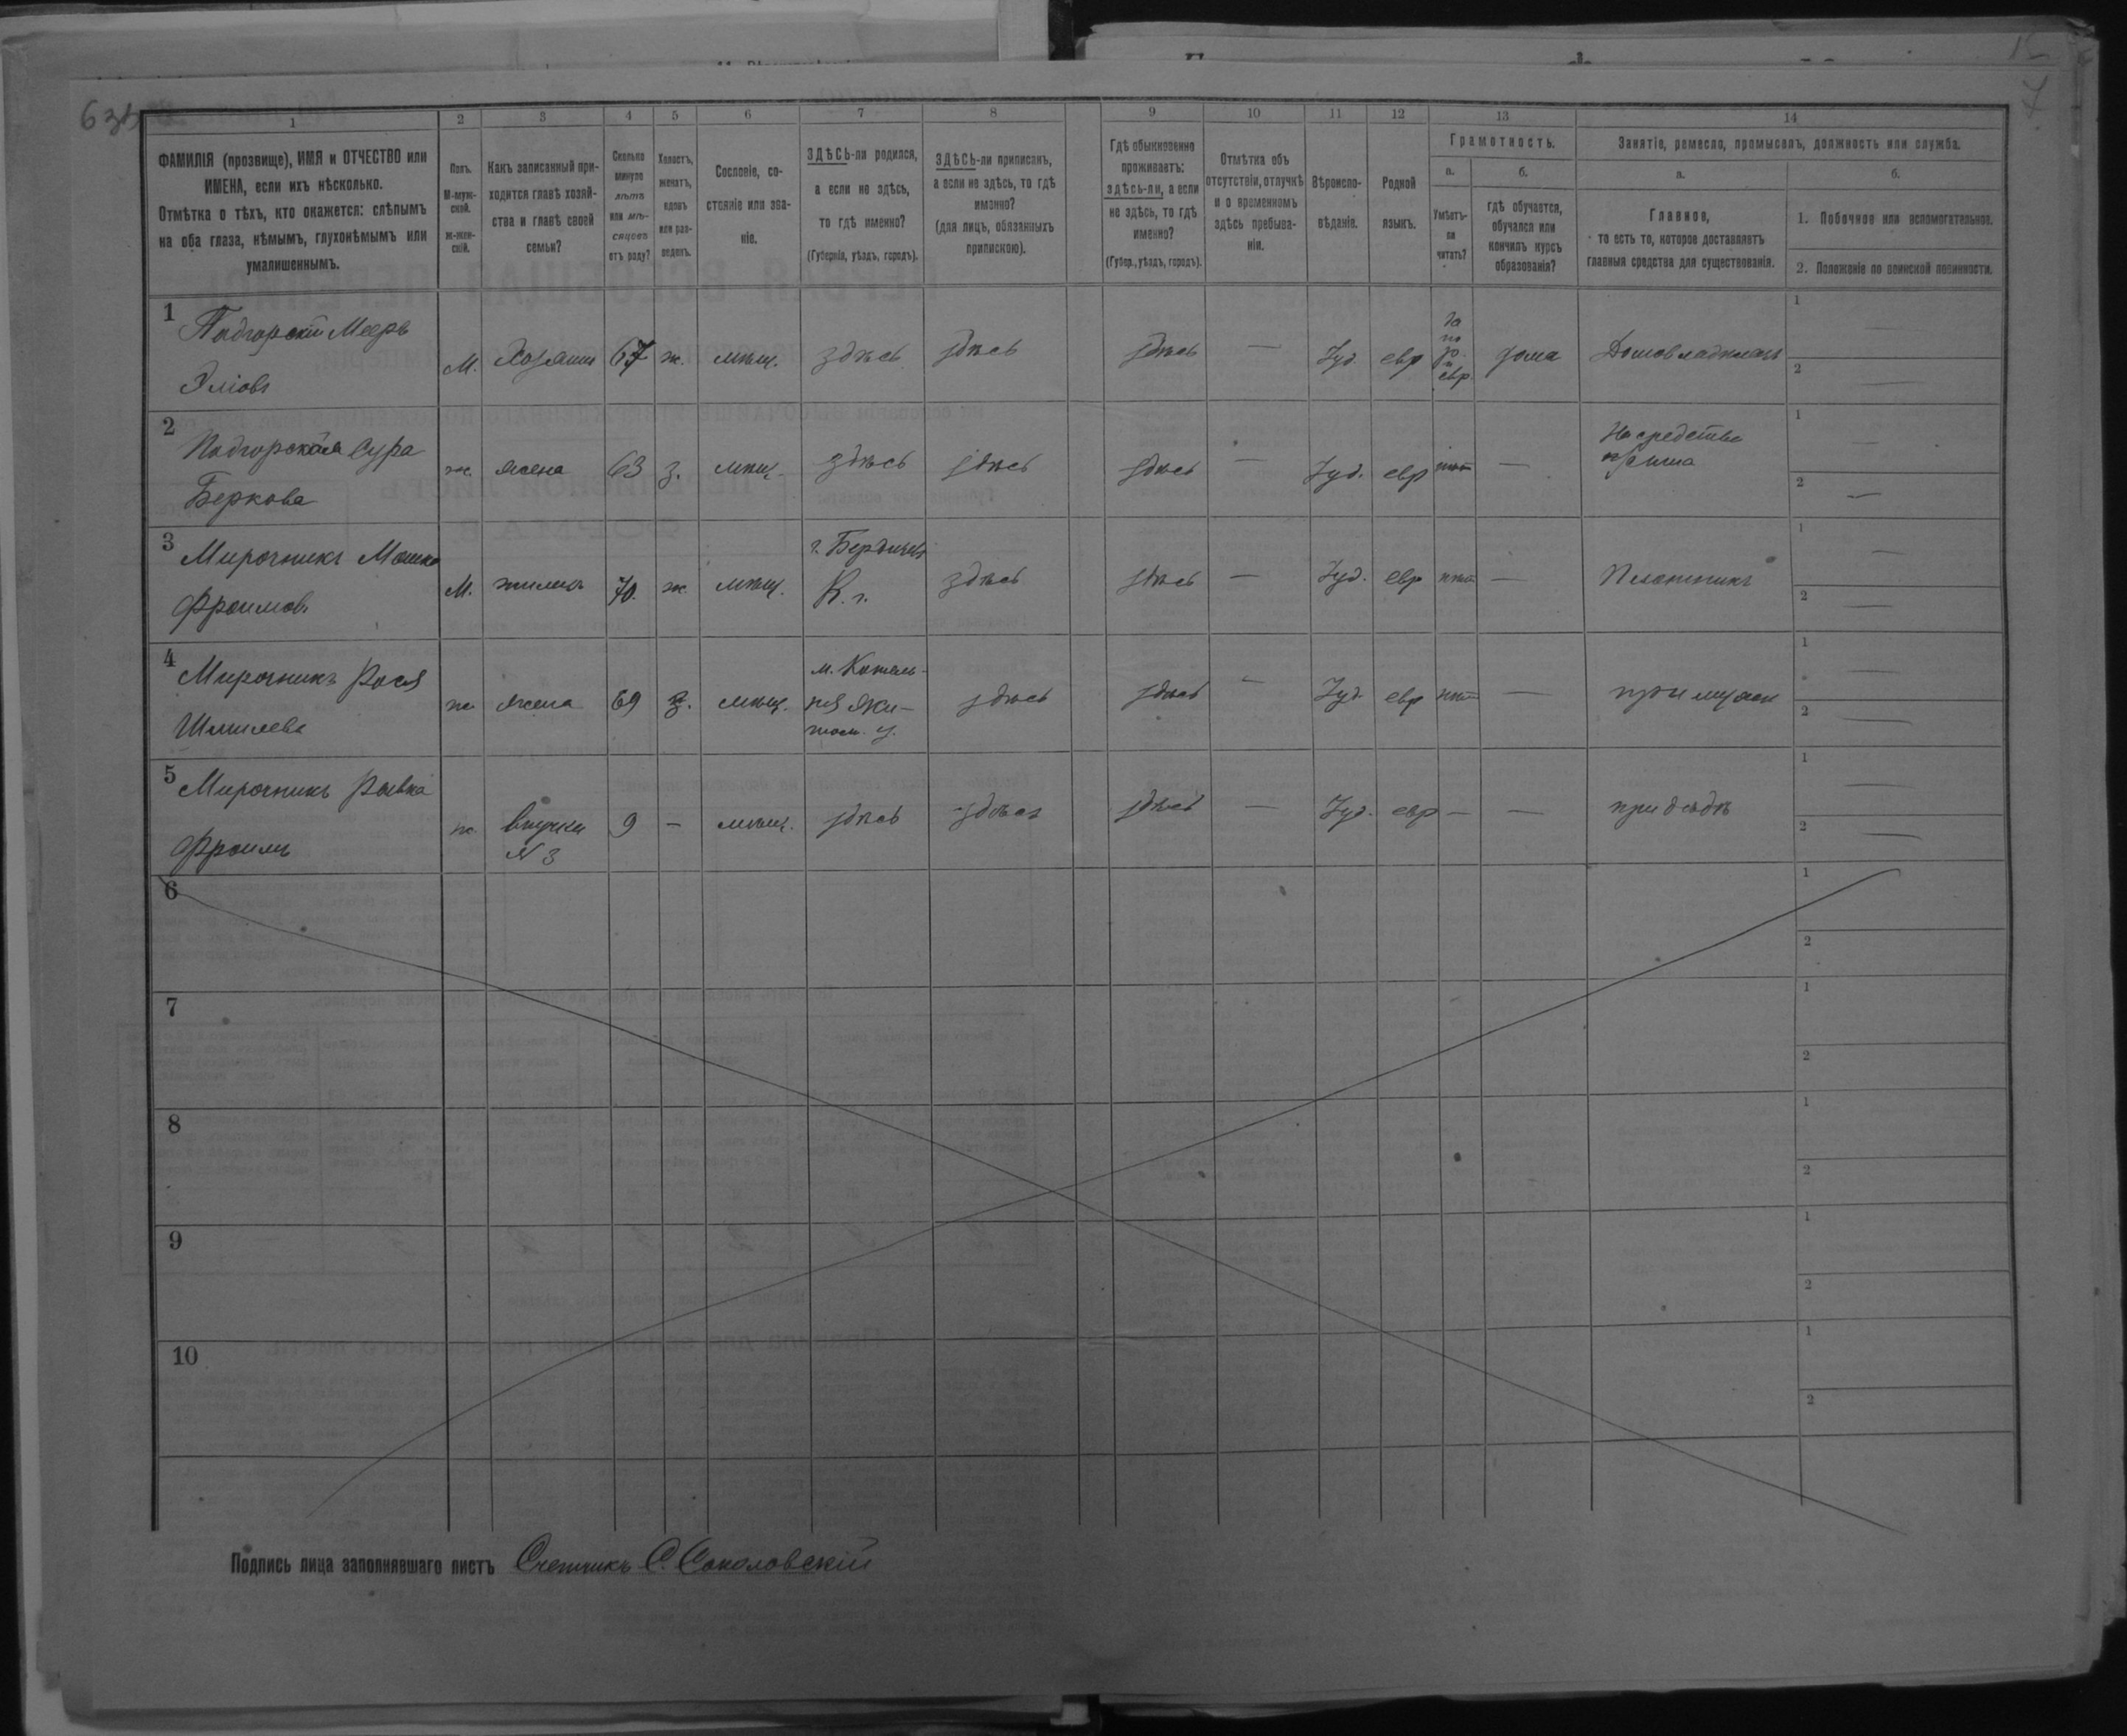 7
1
2
3
4
5
6
7
8
9
10
11
12
13
14
ФАМИЛІЯ (прозвище), ИМЯ и ОТЧЕСТВО или
ИМЕНА, если ихъ нѣсколько.
Отмѣтка о тѣхъ, кто окажется: слѣпымъ
на оба глаза, нѣмымъ, глухонѣмымъ или
умалишеннымъ.
Полъ.
М-муж-
ской.
Ж-жен-
скій.
Какъ записанный при-
ходится главѣ хозяй-
ства и главѣ своей
семьи?
Сколько
минуло
лѣтъ
или мѣ-
сяцевъ
отъ роду?
Холостъ,
женатъ,
вдовъ
или раз-
веденъ.
Сословіе, со-
стояніе или зва-
ніе.
ЗДѢСЬ-ли родился,
а если не здѣсь,
то гдѣ именно?
(Губернія, уѣздъ, городъ).
ЗДѢСЬ-ли приписанъ,
а если не здѣсь, то гдѣ
именно?
(для лицъ, обязанныхъ
припискою).
Гдѣ обыкновенно
проживаетъ:
здѣсь-ли, а если
не здѣсь, то гдѣ
именно?
(Губер., уѣздъ, городъ).
Отмѣтка объ
отсутствіи, отлучкѣ
и о временномъ
здѣсь пребыва-
ніи.
Вѣроиспо-
вѣданіе.
Родной
языкъ.
Грамотность.
а.
Умѣетъ-
ли
читать?
б.
гдѣ обучается,
обучался или
кончилъ курсъ
образованія?
Занятіе, ремесло, промыселъ, должность или служба.
а.
Главное,
то есть то, которое доставляетъ
главныя средства для существованія.
б.
1. Побочное или вспомогательное.
2. Положеніе по воинской повинности.
1
Подгорскій Меерь
Эліовъ
М. Хозяинъ 67 ж. мѣщ. здѣсь здѣсь здѣсь — Іуд. евр
да
по
евр.
дома Домовладѣлецъ
1 —
2 —
2
Подгорская Сура
Беркова
ж. жена 63 з. мѣщ. здѣсь здѣсь здѣсь — Іуд. евр нѣтъ —
На средства
мужа
1 —
2 —
3
Мирочникъ Мошко
Фроимовъ
М. жилецъ 70. ж. мѣщ.
г. Бердичевъ
К. г.
здѣсь здѣсь — Іуд. евр нѣтъ — Плотникъ
1 —
2 —
4
Мирочникъ Рося
Шмилева
ж. жена 69 з. мѣщ.
м. Котель-
ня Жи-
том. у.
здѣсь здѣсь — Іуд. евр нѣтъ — при мужѣ
1 —
2 —
5
Мирочникъ Рывка
Фроимъ
ж. внучка
№ 3
9 — мѣщ. здѣсь здѣсь здѣсь — Іуд. евр — — при дѣдѣ
1 —
2 —
6
1
2
7
1
2
8
1
2
9
1
2
10
1
2
Подпись лица заполнявшаго листъ Счетчикъ С. Соколовскій